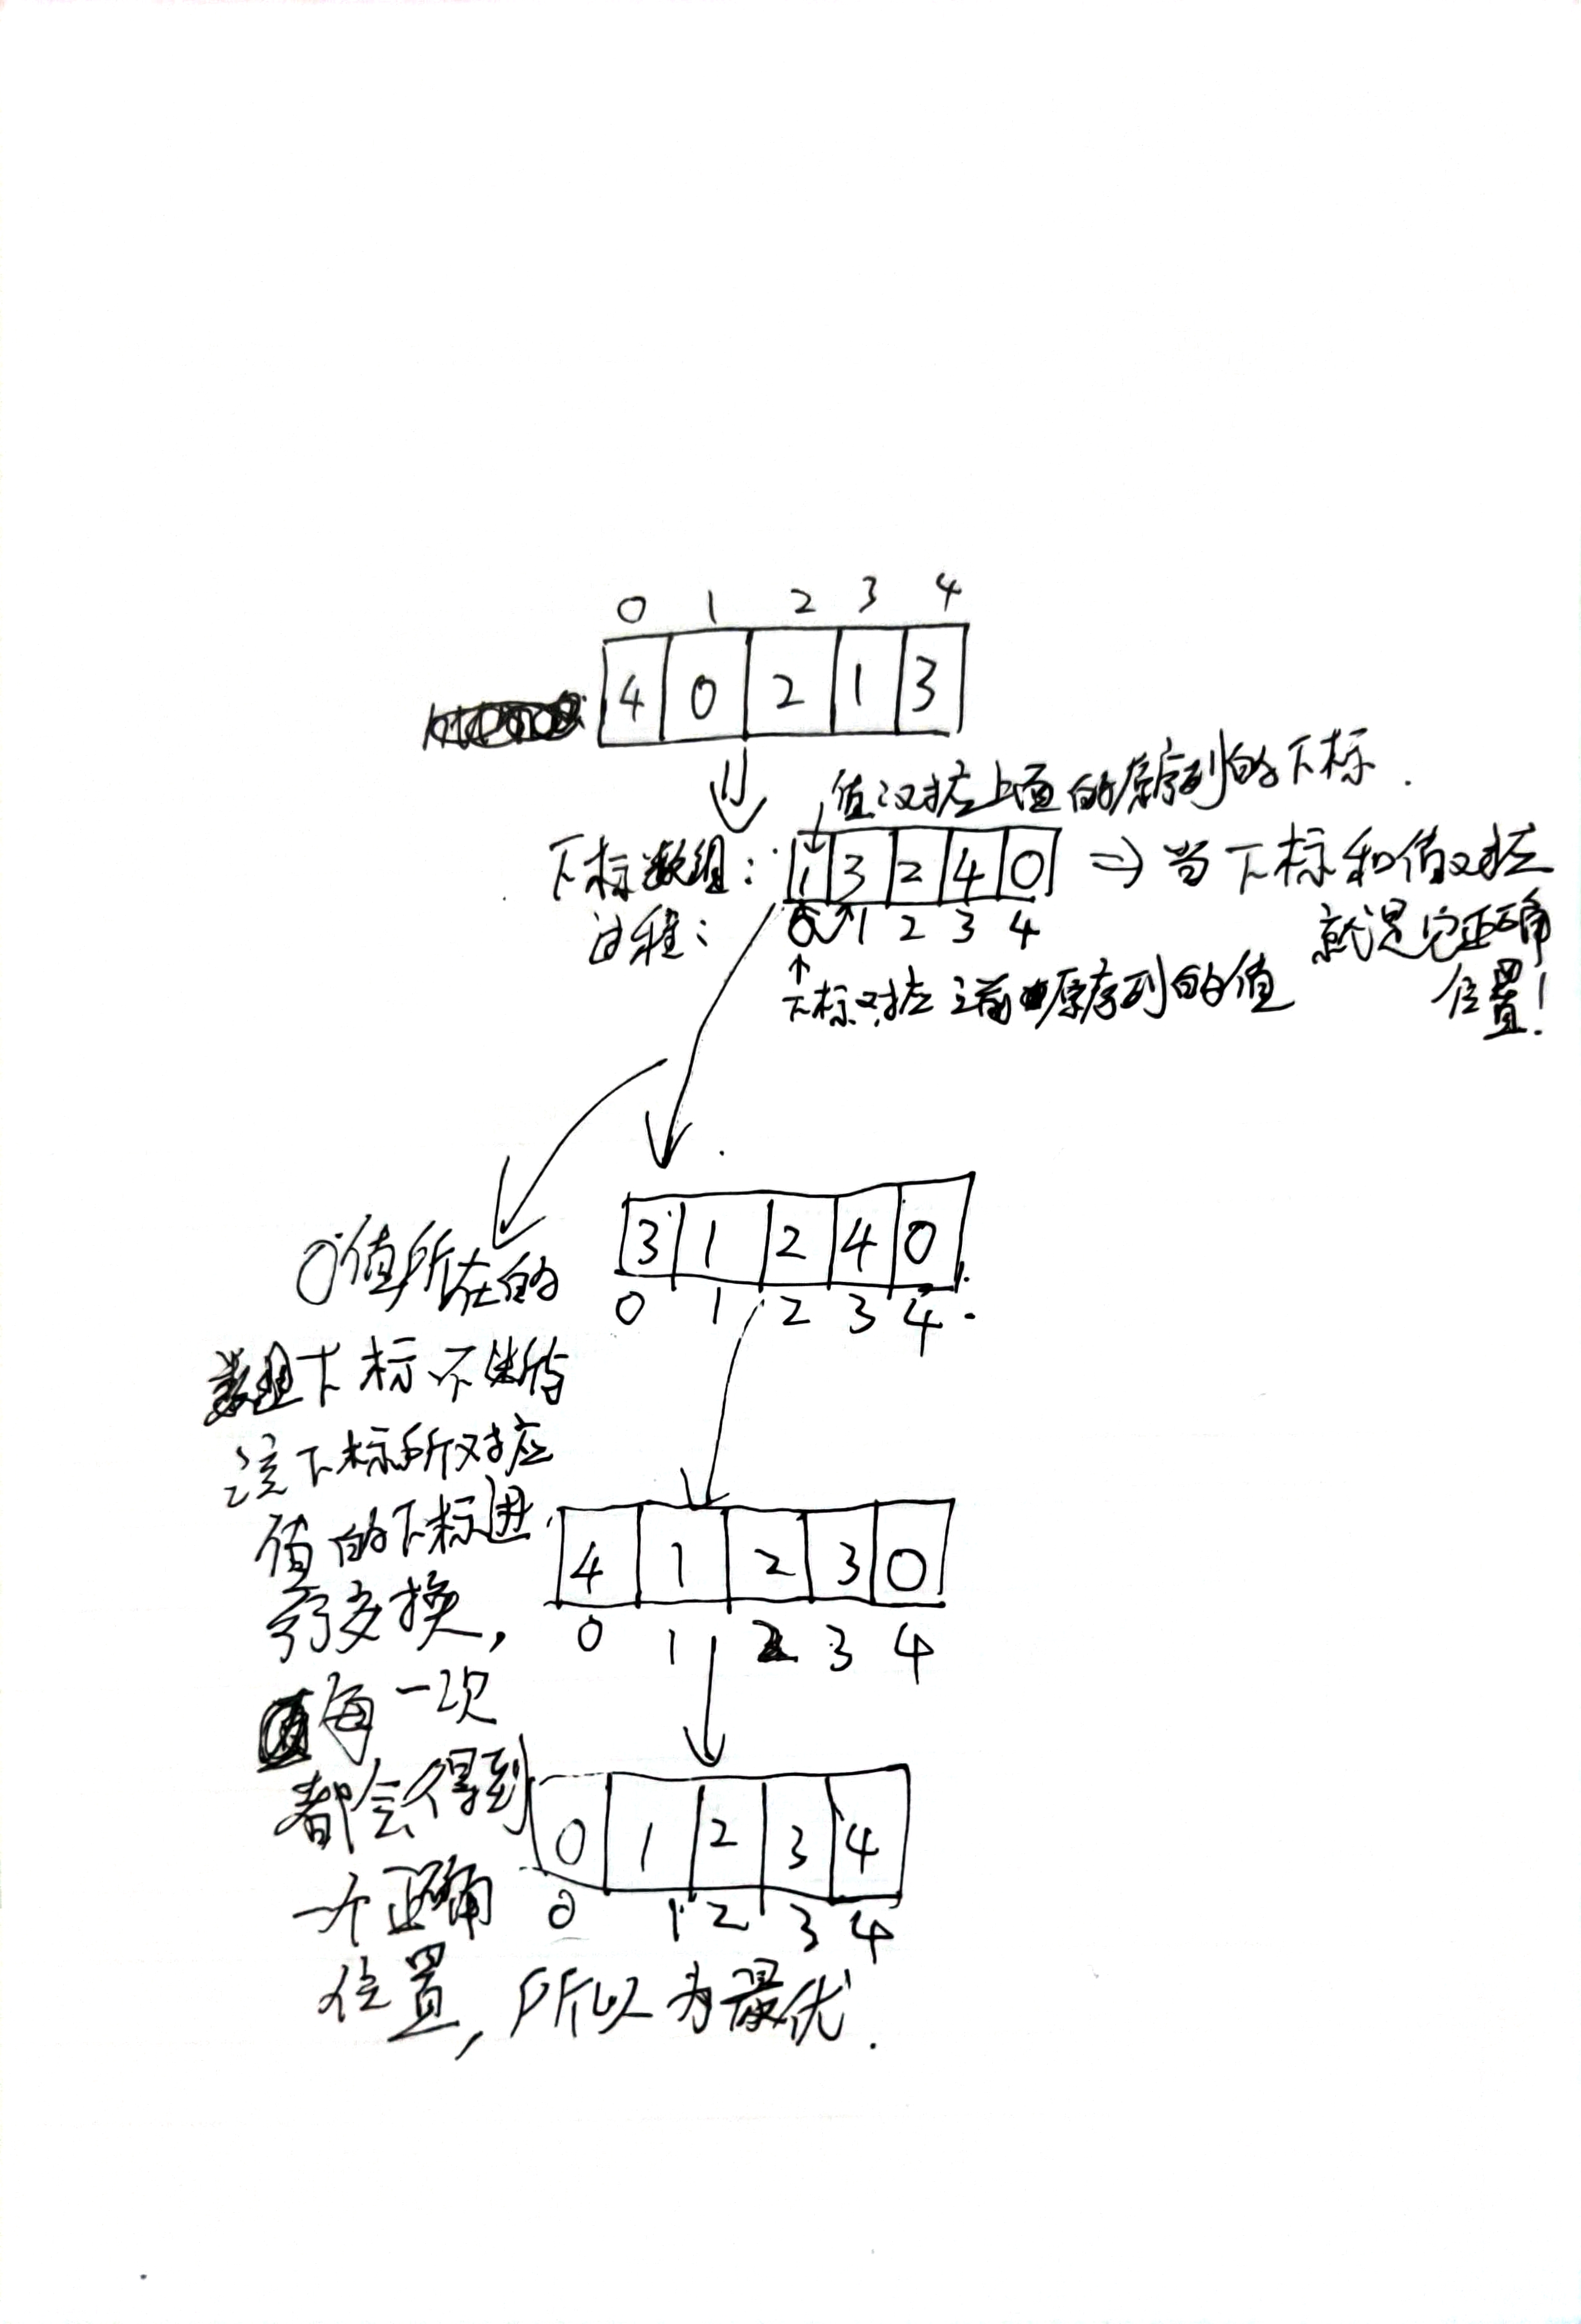 0 1 2 3 4
4 0 2 1 3
值对应上面的原序列的下标.
下标数组: 1 3 2 4 0 ⇒ 当下标和值对应
过程: 0 1 2 3 4 就是它正确
下标对应之前原序列的值 位置!
3 1 2 4 0
0 1 2 3 4
0值所在的
数组下标不断与
该下标所对应
值的下标进
行交换,
每一次
都会得到
一个正确
位置,所以为最优.
4 1 2 3 0
0 1 2 3 4
0 1 2 3 4
0 1 2 3 4